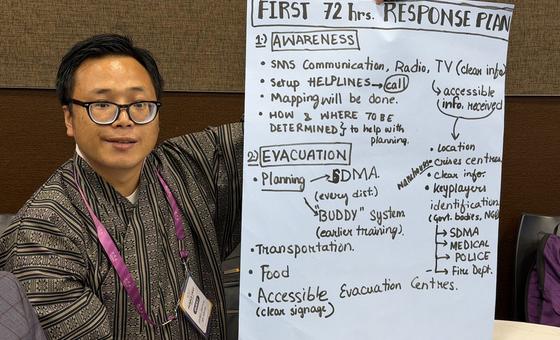 FIRST 72 hrs. RESPONSE PLAN
1) AWARENESS
• SMS Communication, Radio, TV (clear info)
↳ accessible info. received
• Setup HELPLINES → call
• Mapping will be done.
• HOW & WHERE TO BE
DETERMINED } to help with planning.
• Location
• Crises centres
• clear info.
• Keyplayers
identification
(Govt. bodies, NGO
→ SDMA
→ MEDICAL
→ POLICE
→ Fire Dept.
2) EVACUATION
• Planning → SDMA
(every dist.)
"BUDDY" System
(earlier training).
• Transportation.
• Food
• Accessible Evacuation Centres.
(clear signage)